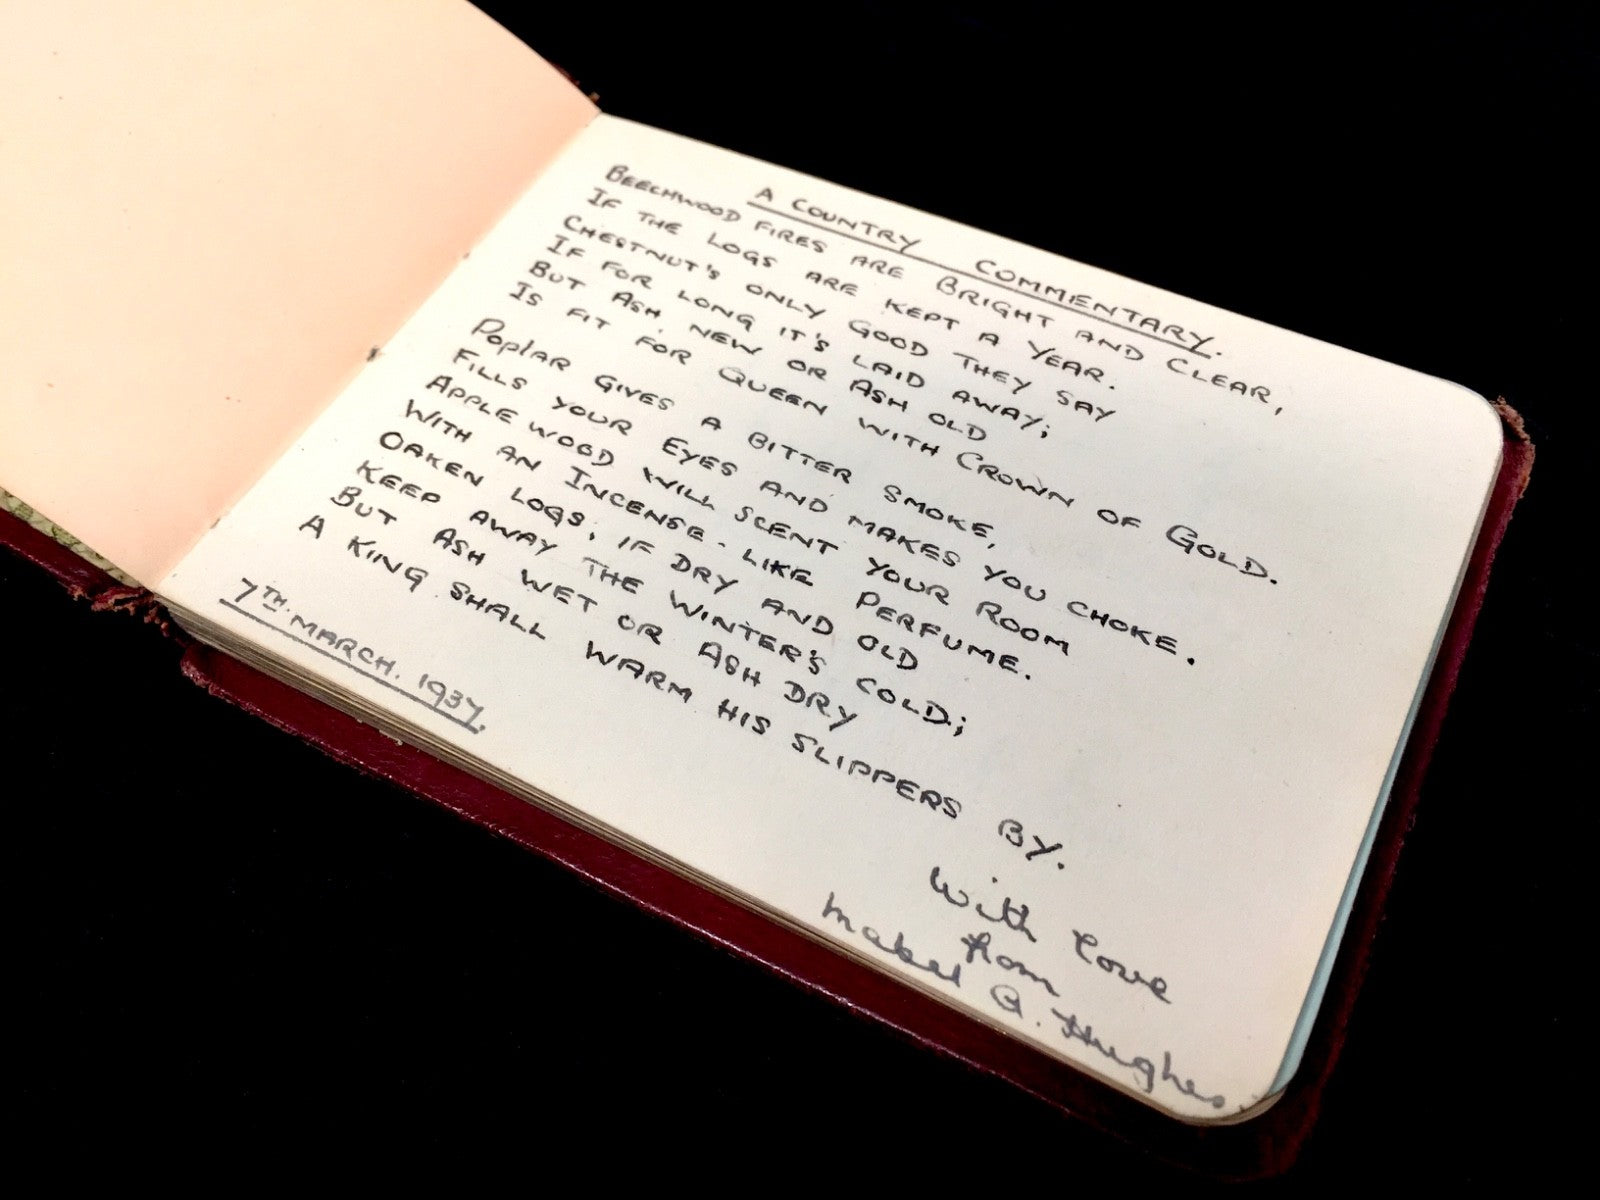 A COUNTRY COMMENTARY.
BEECHWOOD FIRES ARE BRIGHT AND CLEAR,
IF THE LOGS ARE KEPT A YEAR.
CHESTNUT'S ONLY GOOD THEY SAY
IF FOR LONG IT'S LAID AWAY;
BUT ASH NEW OR ASH OLD
IS FIT FOR QUEEN WITH CROWN OF GOLD.
POPLAR GIVES A BITTER SMOKE,
FILLS YOUR EYES AND MAKES YOU CHOKE.
APPLE WOOD WILL SCENT YOUR ROOM
WITH AN INCENSE - LIKE PERFUME.
OAKEN LOGS, IF DRY AND OLD
KEEP AWAY THE WINTER'S COLD;
BUT ASH WET OR ASH DRY
A KING SHALL WARM HIS SLIPPERS BY.
7TH. MARCH. 1937.
With love
from
Mabel A. Hughes.